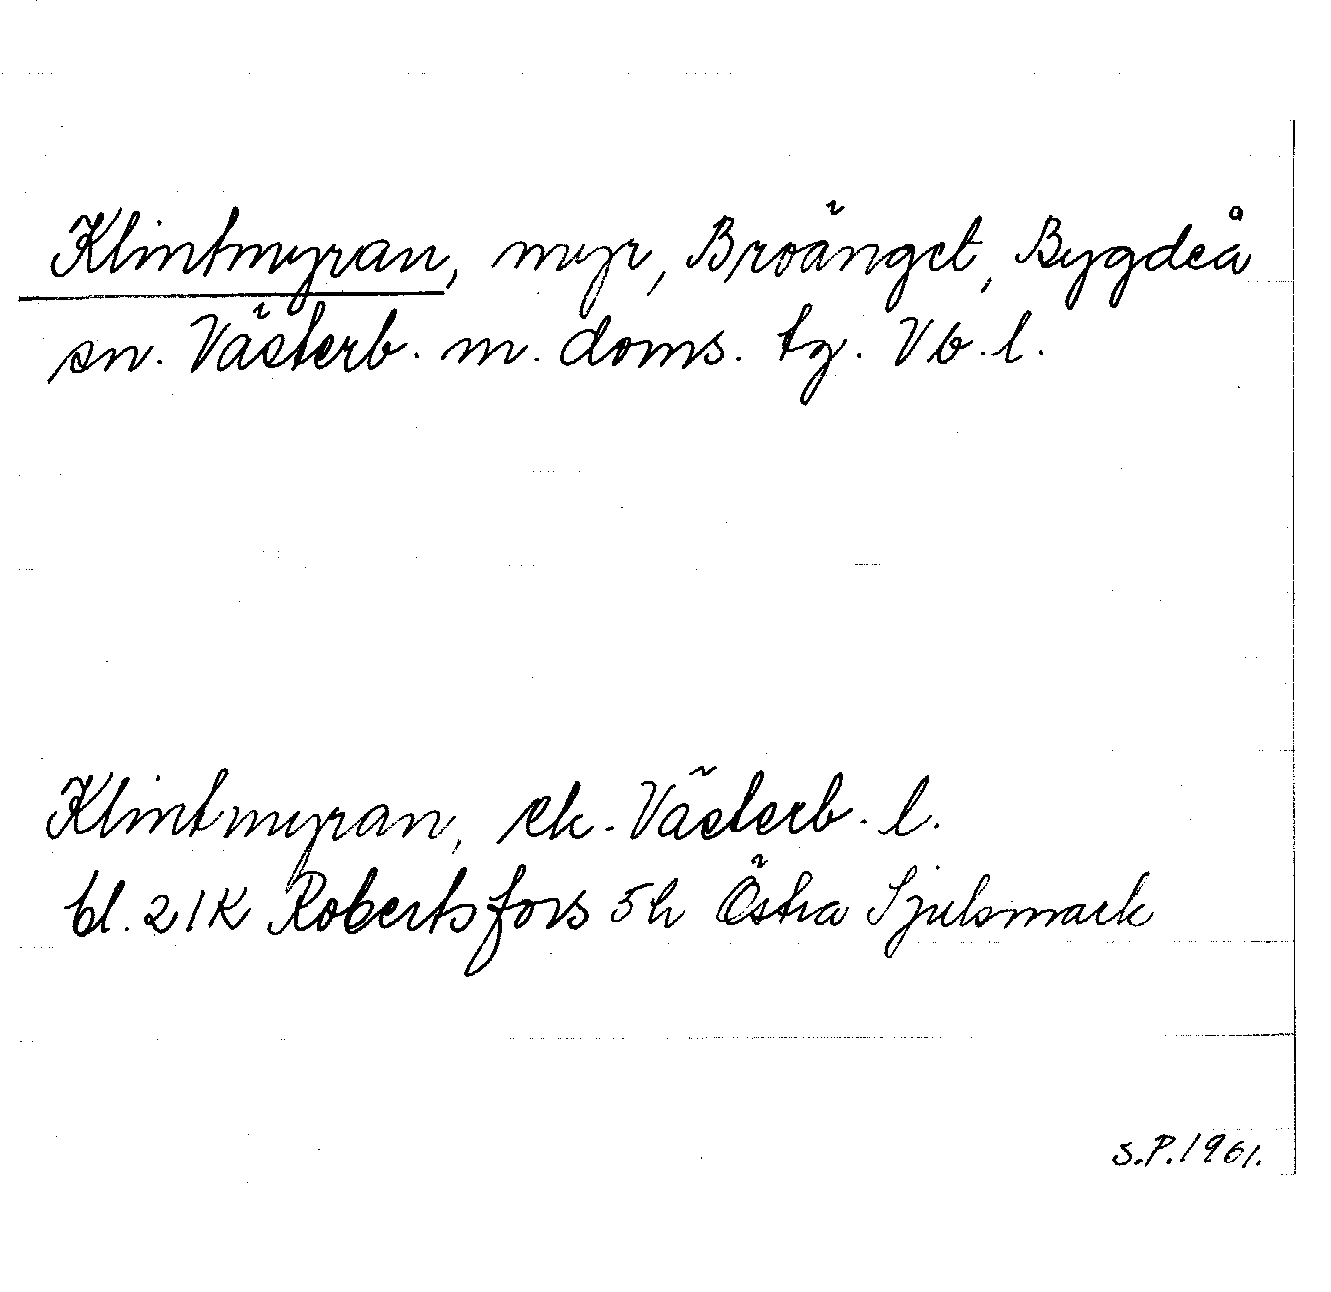 Klintmyran, myr, Broänget, Bygdeå
sn. Västerb. m. doms. tg. Vb. l.
Klintmyran, ek. Västerb. l.
bl. 21K Robertsfors 5h Östra Sjulsmark
S.P. 1961.